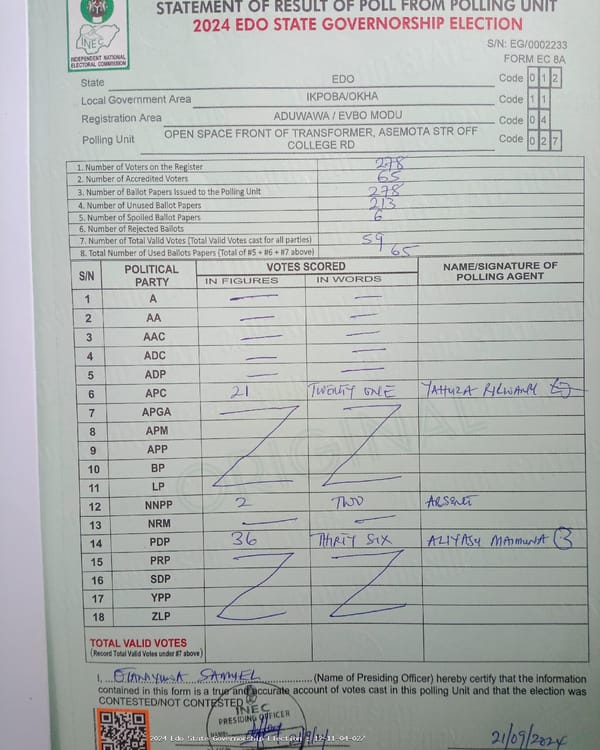 STATEMENT OF RESULT OF POLL FROM POLLING UNIT
2024 EDO STATE GOVERNORSHIP ELECTION
INEC
INDEPENDENT NATIONAL
ELECTORAL COMMISSION
S/N: EG/0002233
FORM EC 8A
State EDO Code 0 1 2
Local Government Area IKPOBA/OKHA Code 1 1
Registration Area ADUWAWA / EVBO MODU Code 0 4
Polling Unit OPEN SPACE FRONT OF TRANSFORMER, ASEMOTA STR OFF COLLEGE RD Code 0 2 7
1. Number of Voters on the Register 278
2. Number of Accredited Voters 65
3. Number of Ballot Papers Issued to the Polling Unit 278
4. Number of Unused Ballot Papers 213
5. Number of Spoiled Ballot Papers 6
6. Number of Rejected Ballots
7. Number of Total Valid Votes (Total Valid Votes cast for all parties) 59
8. Total Number of Used Ballots Papers (Total of #5 + #6 + #7 above) 65
S/N POLITICAL PARTY VOTES SCORED NAME/SIGNATURE OF POLLING AGENT
IN FIGURES IN WORDS
1 A — —
2 AA — —
3 AAC — —
4 ADC — —
5 ADP — —
6 APC 21 TWENTY ONE
7 APGA
8 APM
9 APP
10 BP
11 LP
12 NNPP 2 TWO ABSENT
13 NRM — —
14 PDP 36 THIRTY SIX ALIYASU MAIMUNA
15 PRP
16 SDP
17 YPP
18 ZLP
ORIGINAL
TOTAL VALID VOTES
(Record Total Valid Votes under #7 above)
I, SAMUEL (Name of Presiding Officer) hereby certify that the information
contained in this form is a true and accurate account of votes cast in this polling Unit and that the election was
CONTESTED/NOT CONTESTED
INEC
PRESIDING OFFICER
2024 Edo State Governorship Election
21/09/2024